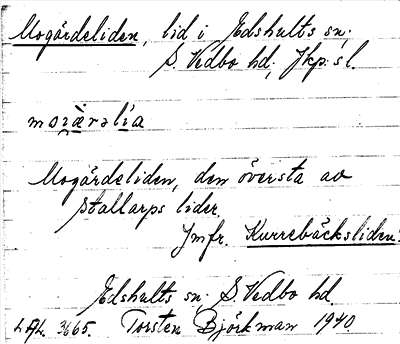 Mogärdeliden, lid i Edshults sn;
S. Vedbo hd; Jkp:s l.
mojærəlía
Mogärdeliden, den översta av
Stallarps lider.
Jmfr. Kurrebäcksliden.
Edshults sn: S. Vedbo hd.
LAL. 3665. Torsten Björkman 1940